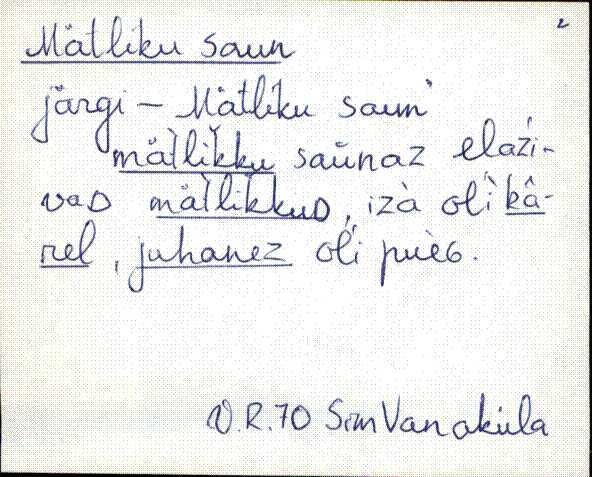 2
Mätliku saun
järgi – Mätliku saun
mätlikku saunaz elazi-
vaD mätlikkuD, iza oli kâ-
rel, juhanez oli puèG.
V.R.70 Sim Vanaküla